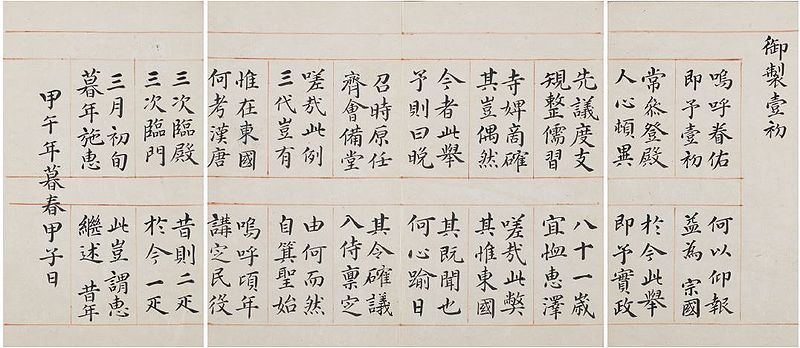 御製壹初
嗚呼春佑
即予壹初
常參登殿
人心頓異
先議度支
規整儒習
寺婢商確
其豈偶然
今者此舉
予則曰晚
召時原任
齊會備堂
嗟哉此例
三代豈有
惟在東國
何考漢唐
三次臨殿
三次臨門
三月初旬
暮年施惠
何以仰報
益為宗國
於今此舉
即予實政
八十一歲
宜恤惠澤
嗟哉此獘
其惟東國
其既聞也
何心踰日
其令確議
入侍稟定
由何而然
自箕聖始
嗚呼頃年
講定民役
昔則二疋
於今一疋
此豈謂惠
繼述昔年
甲午年暮春甲子日